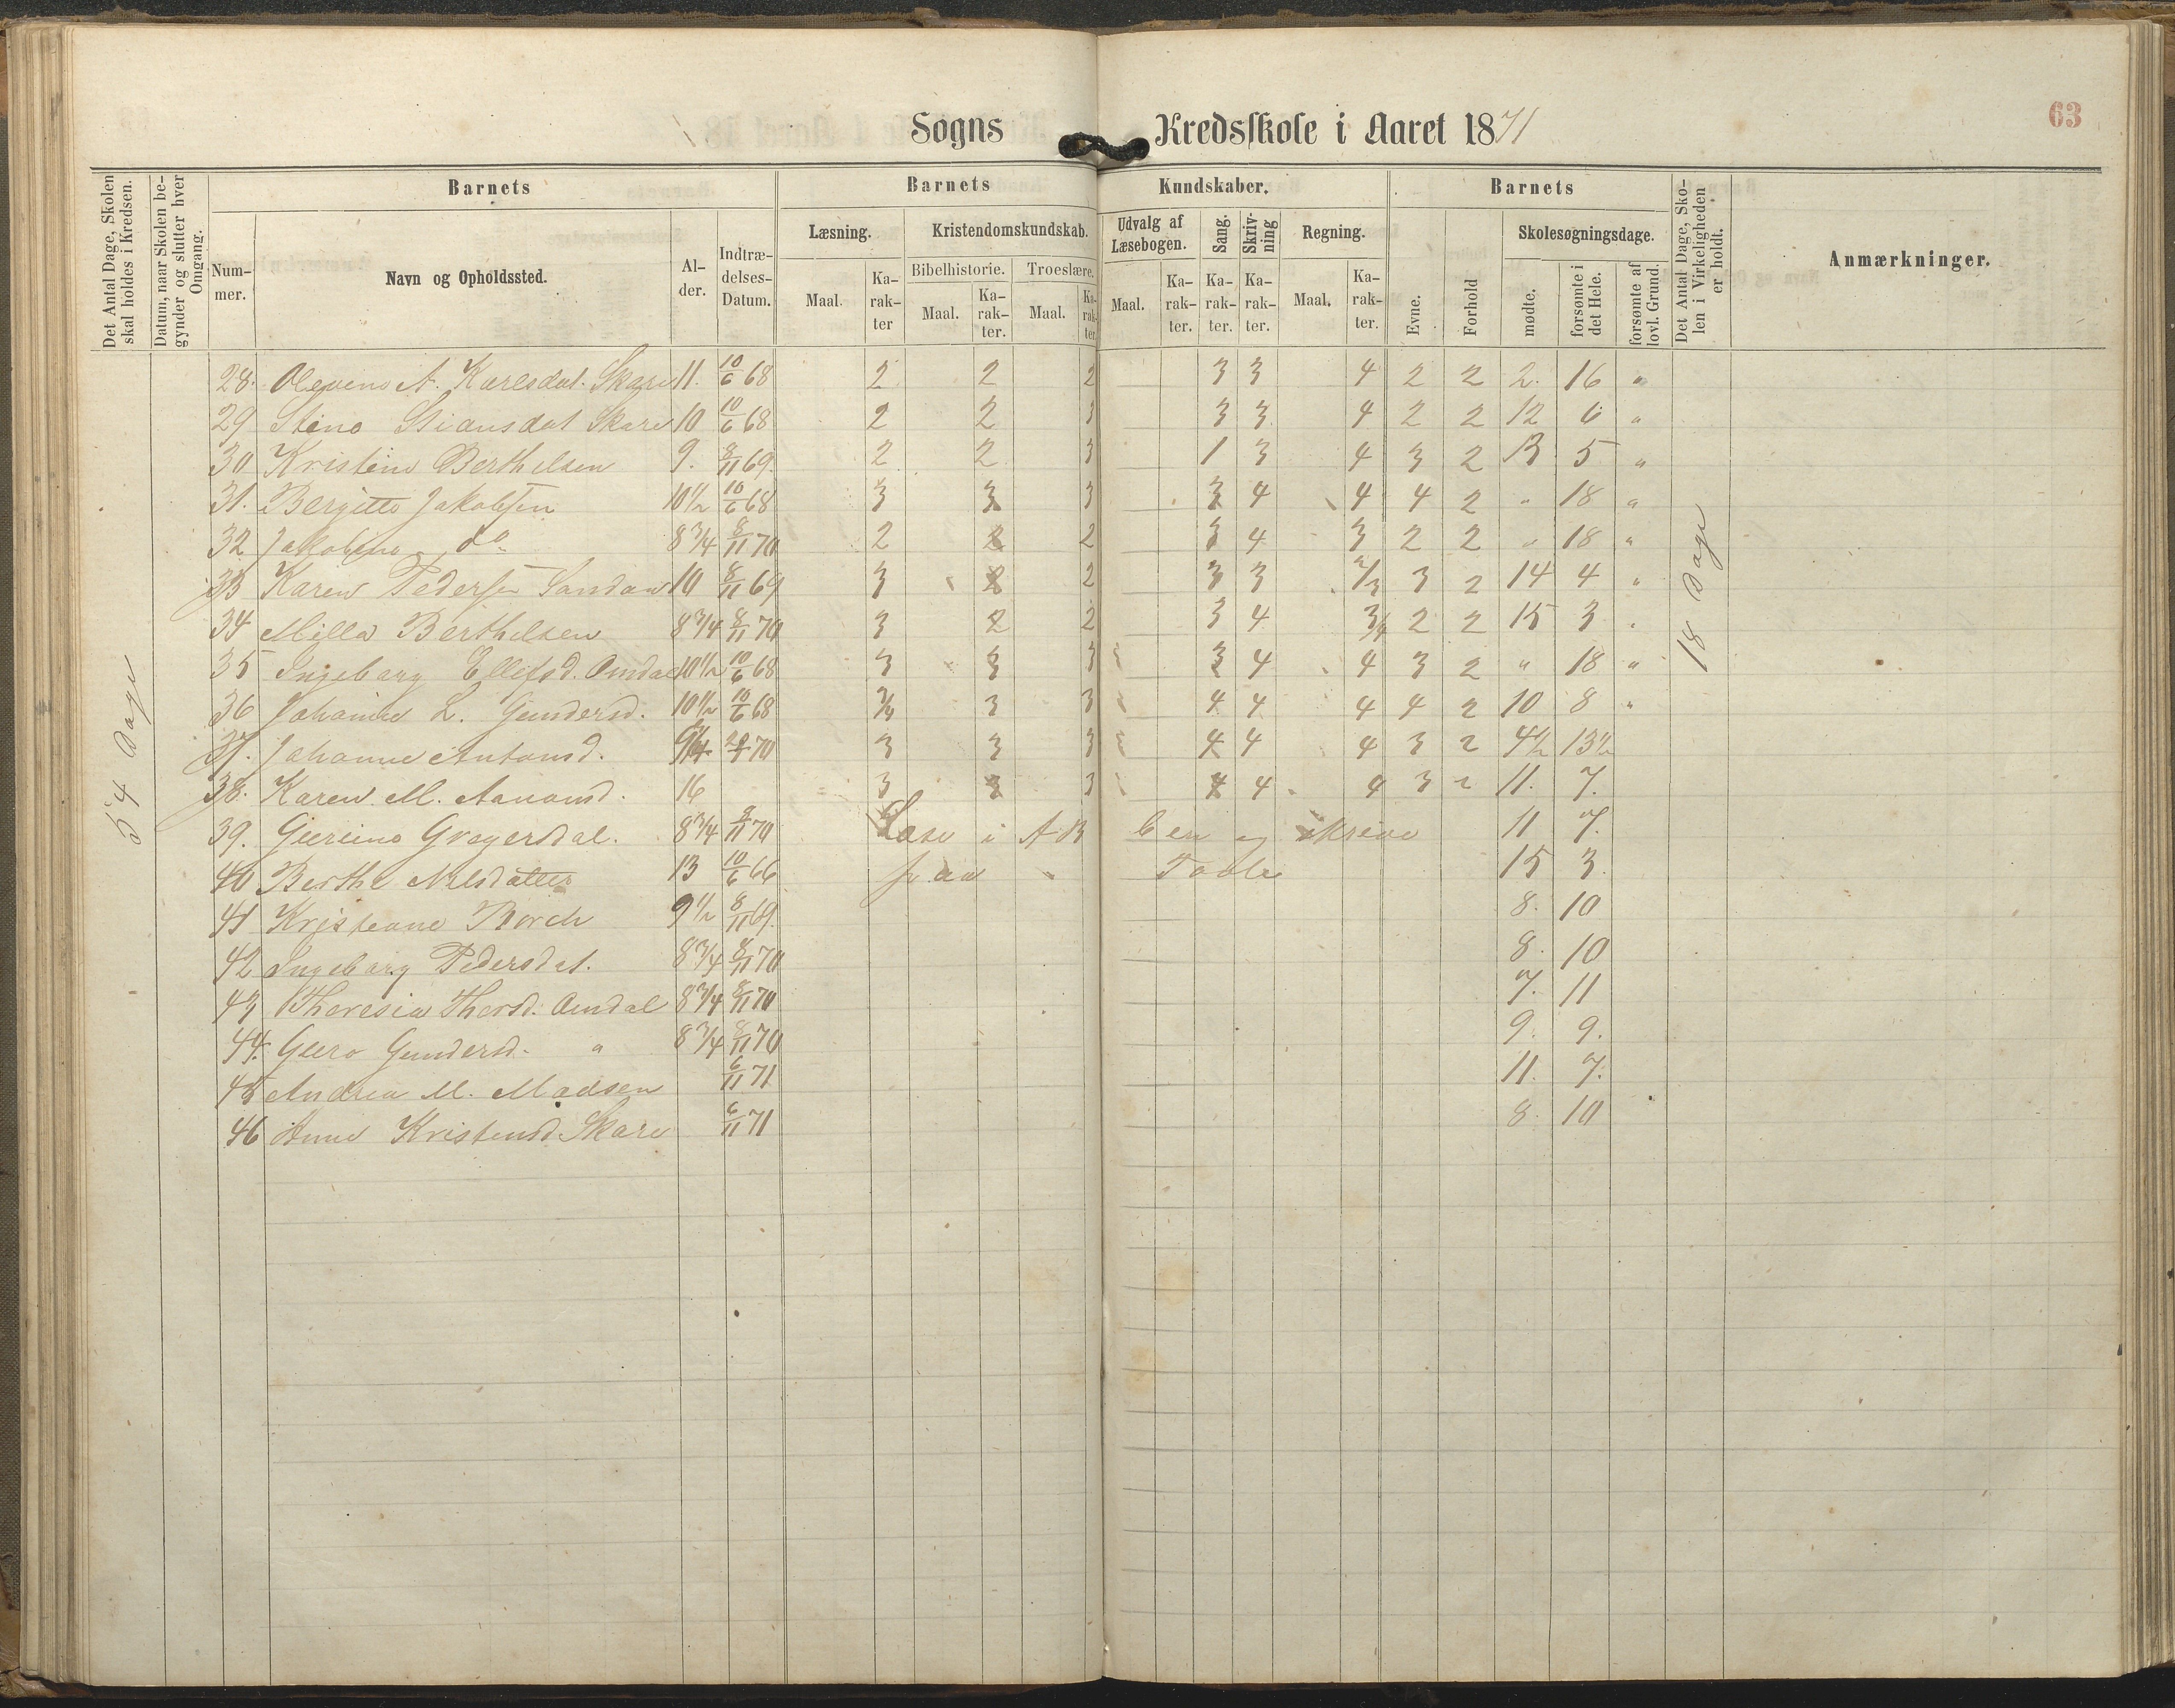 63
Sogns Kredsskole i Aaret 1871
Det Antal Dage, Skolen skal holdes i Kredsen.
Datum, naar Skolen begynder og slutter hver Omgang.
Barnets
Barnets Kundskaber.
Barnets
Det Antal Dage, Skolen i Virkeligheden er holdt.
Anmærkninger.
Nummer.
Navn og Opholdssted.
Alder.
Indtrædelses-Datum.
Læsning.
Kristendomskundskab.
Udvalg af Læsebogen.
Sang.
Skrivning
Regning.
Evne.
Forhold
Skolesøgningsdage.
Bibelhistorie.
Troeslære.
Maal.
Karakter
Maal.
Karakter.
Maal.
Karakter
Maal.
Karakter.
Karakter.
Karakter.
Maal.
Karakter.
mødte.
forsømte i det Hele.
forsømte af lovl. Grund.
54 Dage
18 Dage
28. A. Karlsdat. Skare 11. 10/6 68 2 2 2 3 3 4 2 2 2. 16 "
29 Stine Skare 10 10/6 68 2 2 3 3 3 4 2 2 12 6 "
30 Kristine Berthelsen 9. 8/11 69. 2 2 3 1 3 4 3 2 13 5 "
31. Bergitte Jakobsen 10 1/2 10/6 68 3 3 3 3 4 4 4 2 " 18 "
32 Jakobine do 8 3/4 8/11 70 2 2 2 3 4 3 2 2 " 18 "
33 Karen Pedersen 10 8/11 69 3 2 2 3 3 2/3 3 2 14 4 "
34 Milla Berthelsen 8 3/4 8/11 70 3 2 2 3 4 3/4 2 2 15 3 "
35 Ingeborg Ellefsd. Omdal 10 1/2 10/6 68 3 3 3 3 4 4 3 2 " 18 "
36 Johanne L. Gundersd. 10 1/2 10/6 68 3/4 3 3 4 4 4 4 2 10 8 "
37. Johanne Antonsd. 70 3 3 3 4 4 4 3 2 4 1/2 13 1/2
38. Karen M. Aanonsd. 16 3 3 3 4 4 4 3 2 11. 7.
39. Gregersdat. 8 3/4 8/11 70 Læse i A B C en og skrive 11 7.
40 Berthe Nilsdatter 13 10/6 66 paa Tavle 15 3.
41 Kristiane Borch 9 1/2 8/11 69. 8. 10
42 Ingeborg Pedersdat. 8 3/4 8/11 70 8. 10
43 Theresia Thorsd. Omdal 8 3/4 8/11 70 7. 11
44. Guro Gundersd. " 8 3/4 8/11 70 9. 9.
45 Andrea M. Madsen 6/11 71 11. 7.
46 Anne Kristensd. Skare 6/11 71 8. 10